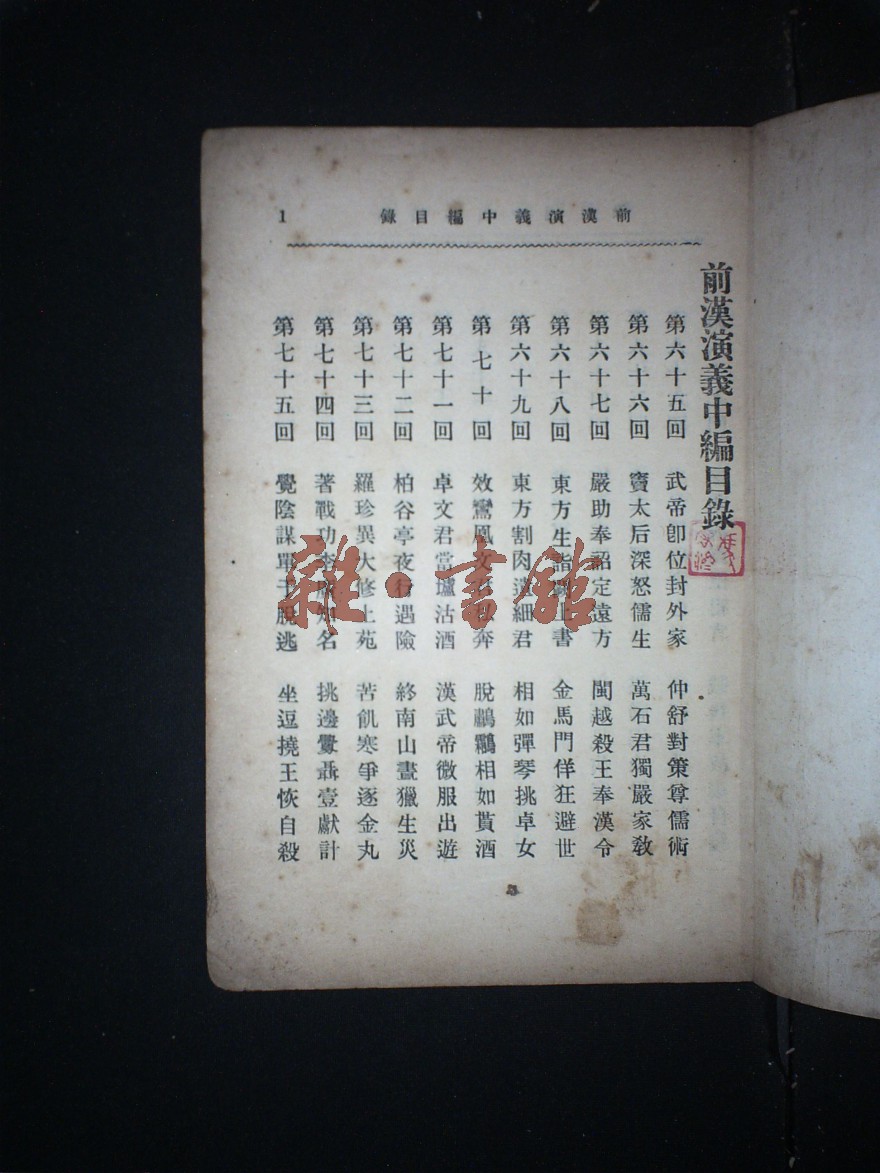 前漢演義中編目錄
1
前漢演義中編目錄
第六十五回 武帝卽位封外家 仲舒對策尊儒術
第六十六回 竇太后深怒儒生 萬石君獨嚴家敎
第六十七回 嚴助奉詔定遠方 閩越殺王奉漢令
第六十八回 東方生詣闕上書 金馬門佯狂避世
第六十九回 東方割肉遺細君 相如彈琴挑卓女
第七十回 效鸞鳳文君私奔 脫鷫鸘相如貰酒
第七十一回 卓文君當壚沽酒 漢武帝微服出遊
第七十二回 柏谷亭夜行遇險 終南山晝獵生災
第七十三回 羅珍異大修上苑 苦飢寒爭逐金丸
第七十四回 著戰功李廣知名 挑邊釁聶壹獻計
第七十五回 覺陰謀單于脫逃 坐逗撓王恢自殺
雜·書館